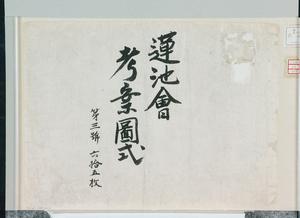 蓮池會
考案圖式
第三號 六拾五枚